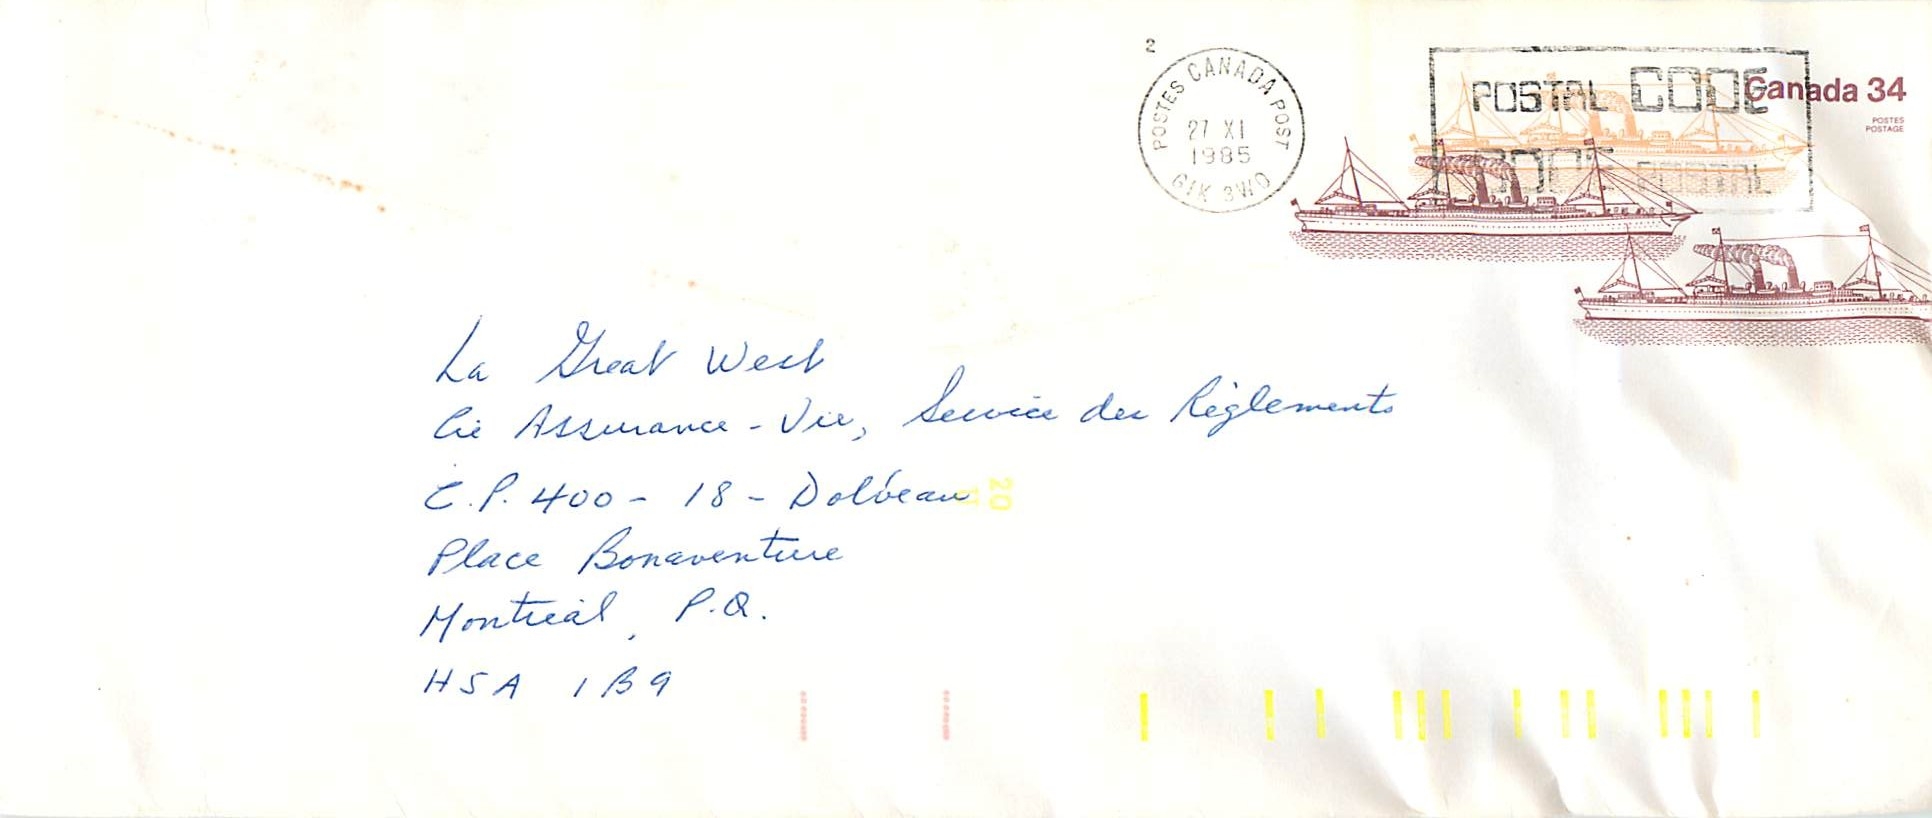 2
POSTES CANADA POST
27 XI
1985
G1K 3W0
POSTAL CODE
CODE POSTAL
Canada 34
POSTES
POSTAGE
La Great West
Cie Assurance-Vie, Service des Règlements
C.P. 400 - 18 - Dolbeau
20
11
Place Bonaventure
Montréal, P.Q.
H5A 1B9